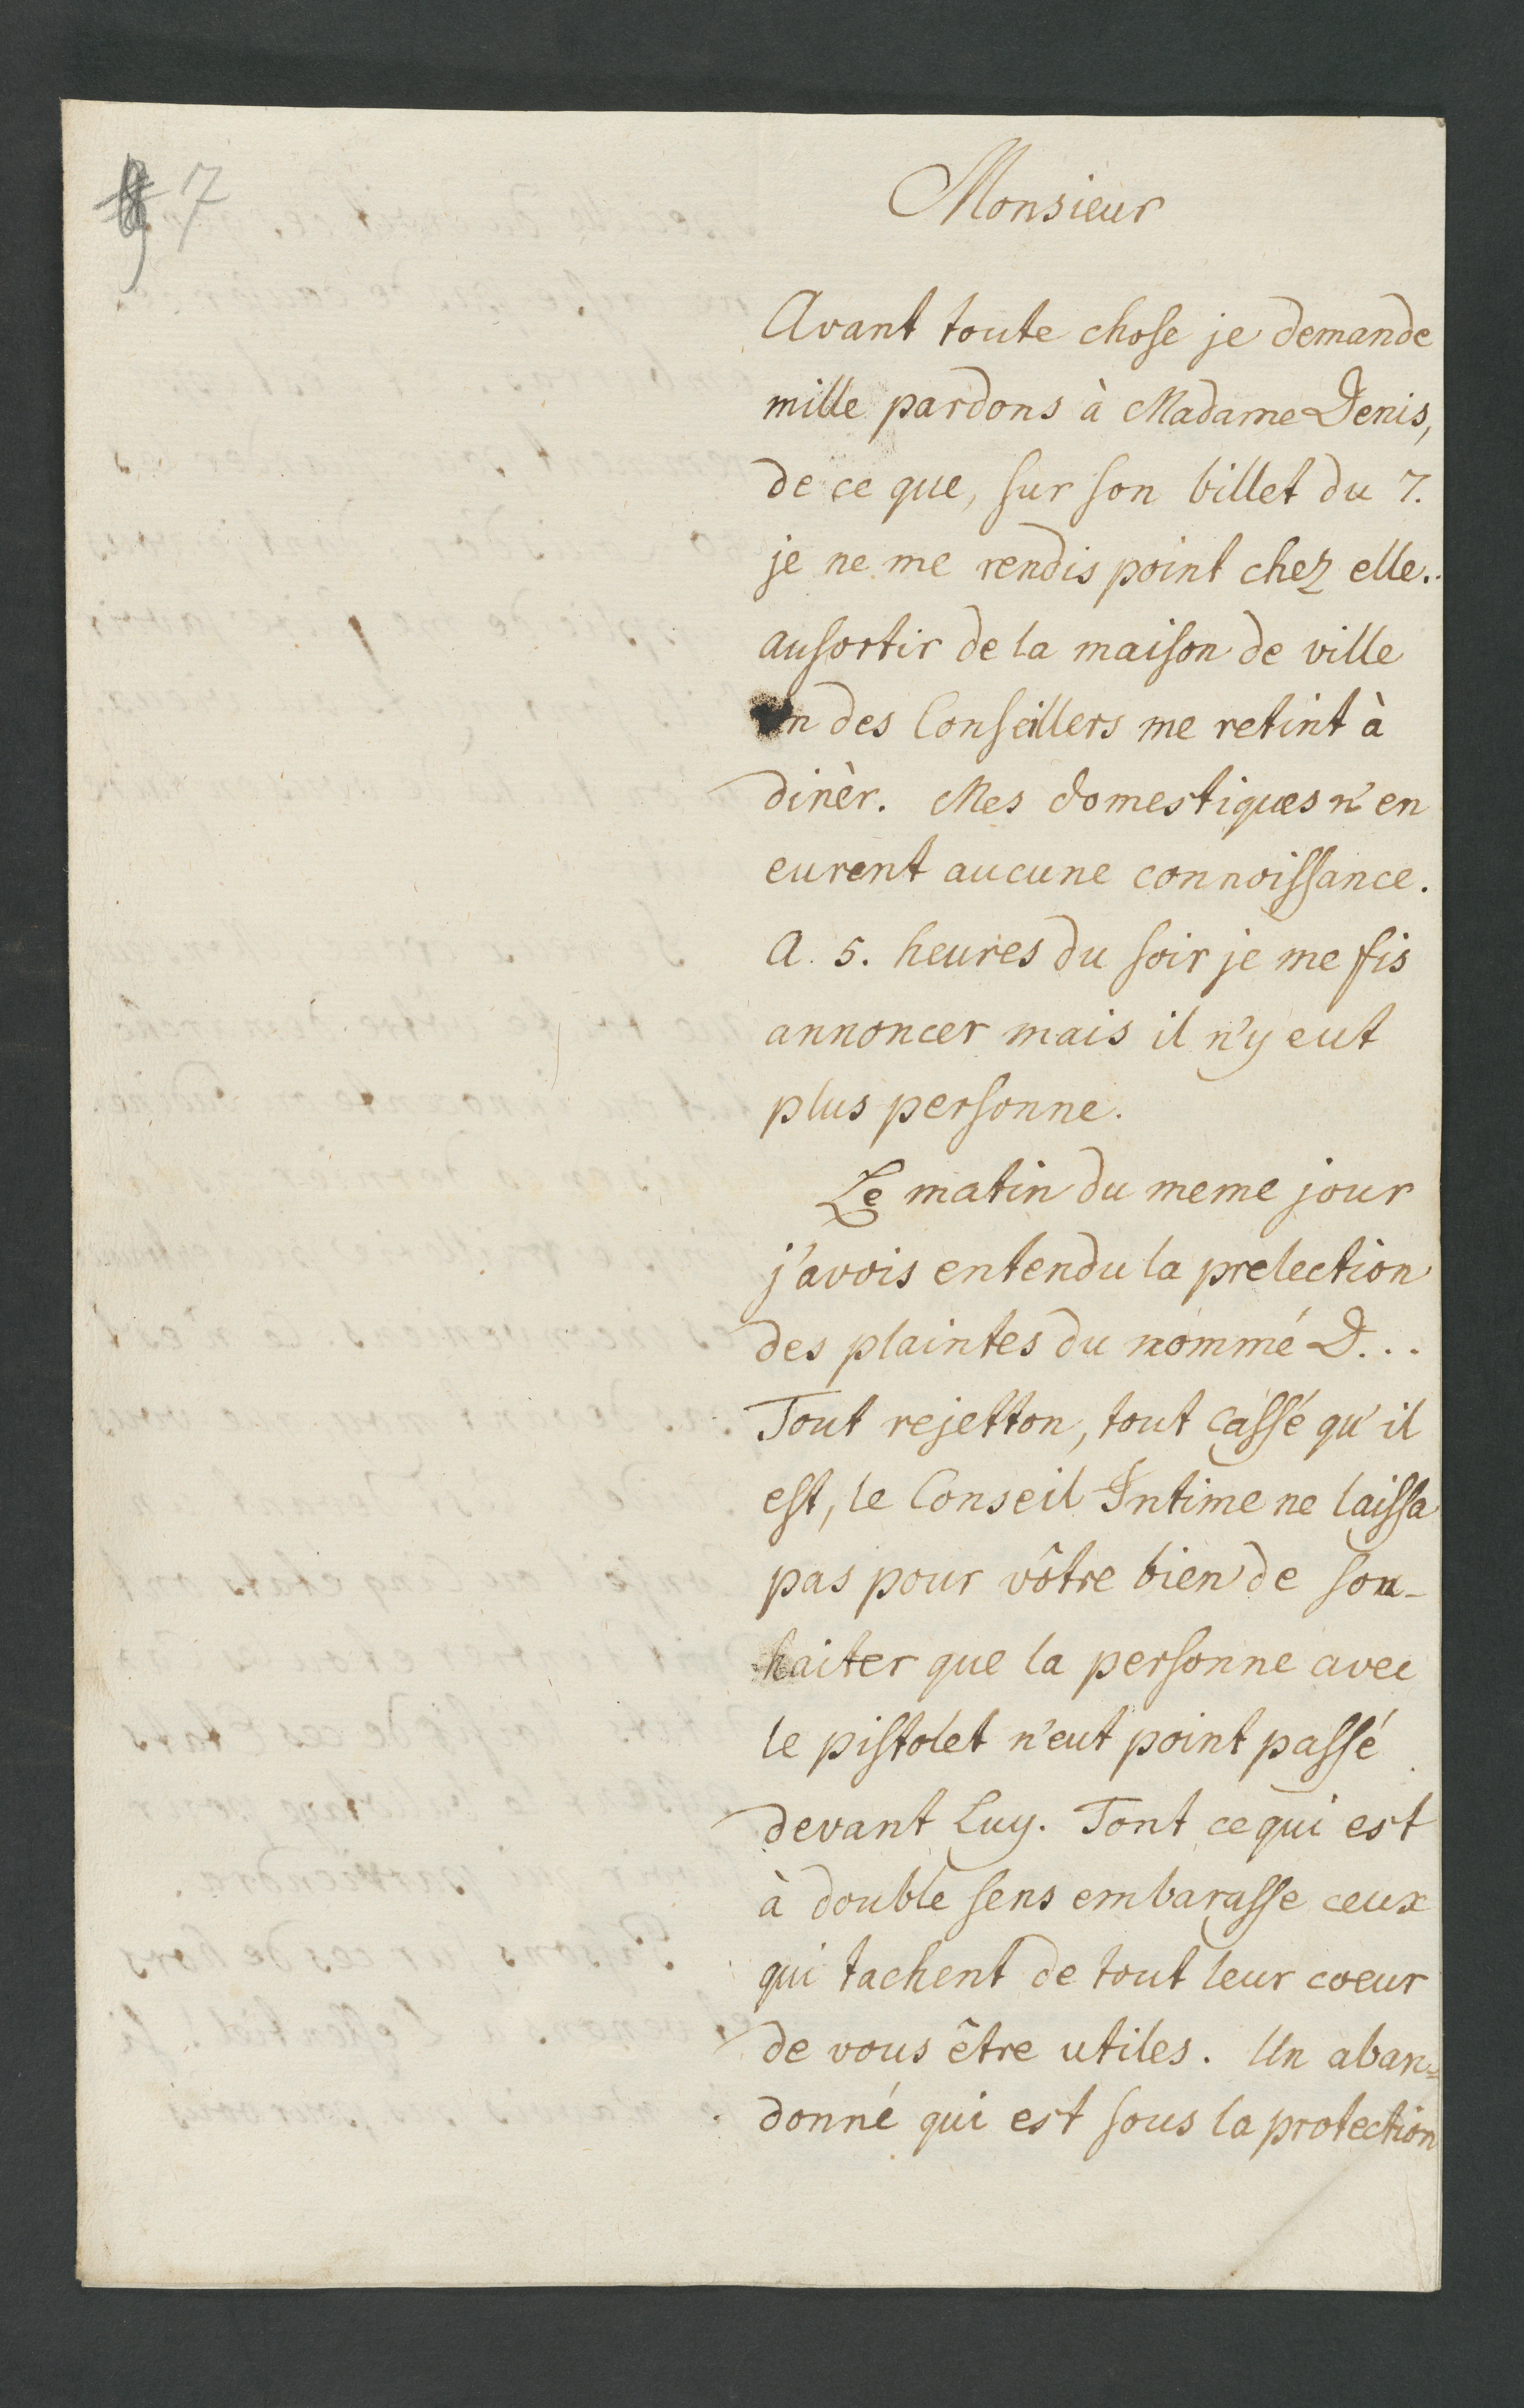 7
Monsieur
Avant toute chose je demande
mille pardons à Madame Denis,
de ce que, sur son billet du 7.
je ne me rendis point chez elle.
ausortir de la maison de ville
un des Conseillers me retint à
dinèr. Mes domestiques n'en
eurent aucune connoissance.
A 5. heures du soir je me fis
annoncer mais il n'y eut
plus personne.
Le matin du meme jour
j'avois entendu la prelection
des plaintes du nommé D...
Tout rejetton, tout cassé qu'il
est, le Conseil Intime ne laissa
pas pour vôtre bien de sou-
haiter que la personne avec
le pistolet n'eut point passé
devant Luy. Tout cequi est
à double sens embarasse ceux
qui tachent de tout leur coeur
de vous être utiles. Un aban=
donné qui est sous la protection